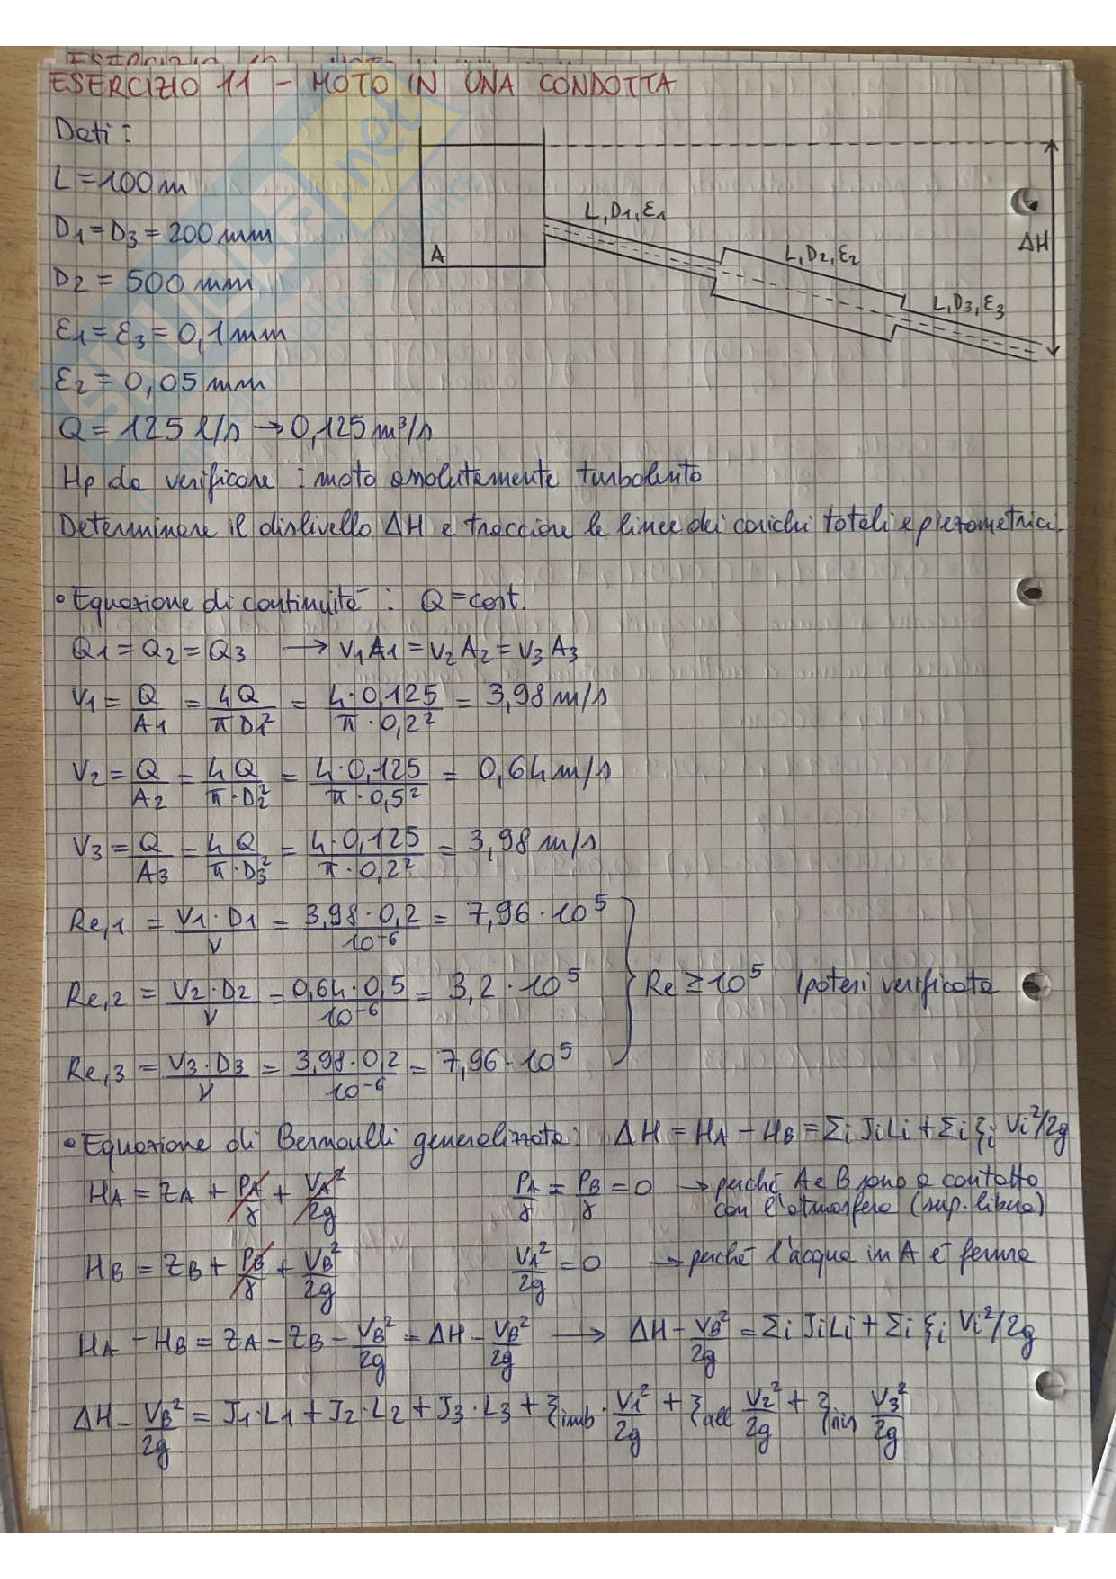 ESERCIZIO 11 - MOTO IN UNA CONDOTTA
Dati:
L = 100 m
D1 = D3 = 200 mm
D2 = 500 mm
ε1 = ε3 = 0,1 mm
ε2 = 0,05 mm
Q = 125 l/s → 0,125 m³/s
A
L, D1, ε1
L, D2, ε2
L, D3, ε3
ΔH
Hp da verificare : moto assolutamente turbolento
Determinare il dislivello ΔH e tracciare le linee dei carichi totali e piezometrica.
• Equazione di continuità : Q = cost.
Q1 = Q2 = Q3 → V1A1 = V2A2 = V3A3
V1 = Q/A1 = 4Q/πD1² = 4·0,125/π·0,2² = 3,98 m/s
V2 = Q/A2 = 4Q/π·D2² = 4·0,125/π·0,5² = 0,64 m/s
V3 = Q/A3 = 4Q/π·D3² = 4·0,125/π·0,2² = 3,98 m/s
Re,1 = V1·D1/ν = 3,98·0,2/10⁻⁶ = 7,96·10⁵
Re,2 = V2·D2/ν = 0,64·0,5/10⁻⁶ = 3,2·10⁵
Re ≥ 10⁵ Ipotesi verificata
Re,3 = V3·D3/ν = 3,98·0,2/10⁻⁶ = 7,96·10⁵
• Equazione di Bernoulli generalizzata: ΔH = HA - HB = Σi JiLi + Σi ξi Vi²/2g
HA = ZA + PA/γ + VA²/2g PA/γ = PB/γ = 0 → perché A e B sono a contatto
con l'atmosfera (sup. libera)
HB = ZB + PB/γ + VB²/2g V1²/2g = 0 → perché l'acqua in A è ferma
HA - HB = ZA - ZB - VB²/2g = ΔH - VB²/2g → ΔH - VB²/2g = Σi JiLi + Σi ξi Vi²/2g
ΔH - VB²/2g = J1·L1 + J2·L2 + J3·L3 + ξimb·V1²/2g + ξall V2²/2g + ξ V3²/2g